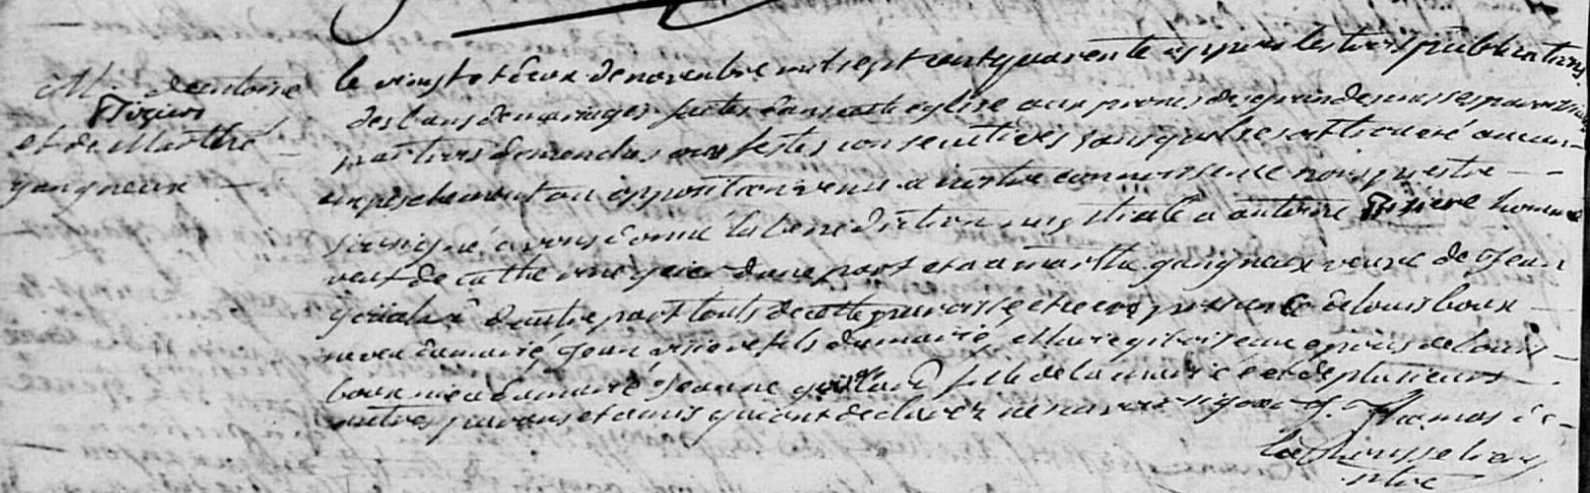 M. d'antoine
Risiere
et de Marthe
gangneux
le vingt et deux de novembre mil sept cent quarente appres les trois publications
des bans de mariages faittes dans cette eglise aux prones des grandes messes paroissialles
par trois dimanches ou festes consecutives sans quil se soit trouvé aucun
empeschement ou opposition venu a nostre connoissence nous prestre
soussigné avons donné la benediction nuptiale a antoine Risiere homme
veuf de catherine d'une part et a marthe gangneux veuve de Jean
d'autre part touts de cette parroisse et ce en presence de louis boux
neveu du marié, Jean fils du marié, Marie epouse de louis
boux niece du marié Jeanne fille de la mariée et de plusieurs
autres parans et amis qui ont declarez ne scavoir signer J. Thomas de
la
ptre